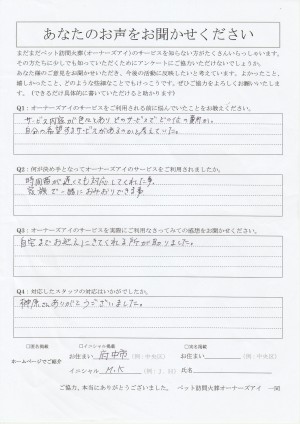 あなたのお声をお聞かせください
まだまだペット訪問火葬(オーナーズアイ)のサービスを知らない方がたくさんいらっしゃいます。
その方たちに少しでも知っていただくためにアンケートにご協力いただけないでしょうか。
あなた様のご意見をお聞かせいただき、今後の活動に反映したいと考えています。よかったこと、
嬉しかったこと、どのような些細なことでもけっこうです。ぜひご協力をよろしくお願いいたします。
(できるだけ具体的に書いていただけると助かります)
Q1：オーナーズアイのサービスをご利用される前に悩んでいたことをお教えください。
サービス内容が色々とあり どのサービスで どの位の費用か。
自分の希望するサービスがあるのかと考えていた。
Q2：何が決め手となってオーナーズアイのサービスをご利用されましたか。
時間帯が遅くても対応してくれた事
家族で一緒におみおくりできる事
Q3：オーナーズアイのサービスを実際にご利用なさってみての感想をお聞かせください。
自宅までお迎えにきてくれる所が助りました。
Q4：対応したスタッフの対応はいかがでしたか。
榊原さんありがとうございました。
□匿名掲載 □イニシャル掲載 □実名掲載
ホームページでご紹介
お住まい 府中市 (例：中央区) お住まい (例：中央区)
イニシャル M.K (例：J.S) 氏名
ご協力、本当にありがとうございました。 ペット訪問火葬オーナーズアイ 一同